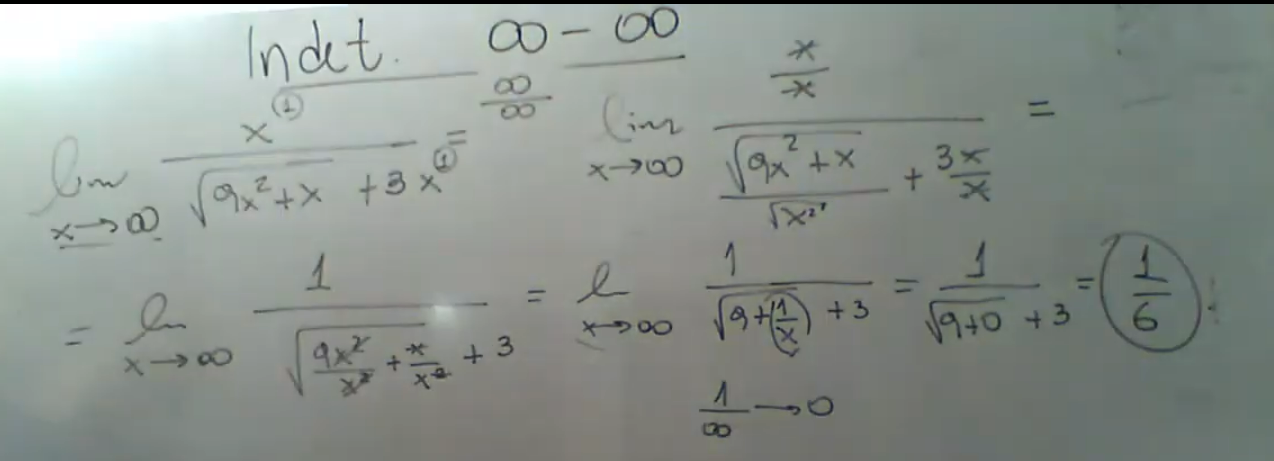 Indet. ∞ - ∞
lim x→∞ x^① / (√(9x²+x) + 3x^①) = ∞/∞ lim x→∞ (x/x) / (√(9x²+x)/√x² + 3x/x) =
= lim x→∞ 1 / (√(9x²/x² + x/x²) + 3) = l x→∞ 1 / (√(9+(1/x)) + 3) = 1 / (√(9+0) + 3) = 1/6
1/∞ → 0